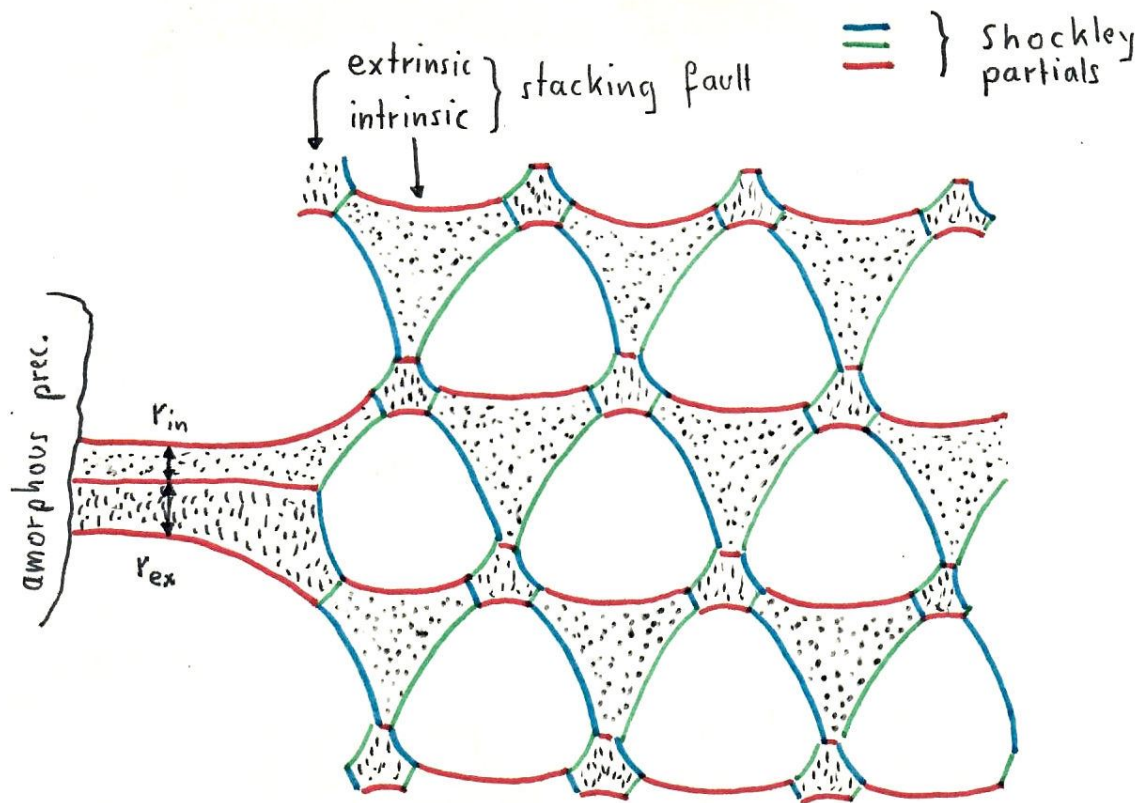 extrinsic
intrinsic
stacking fault
Shockley
partials
amorphous prec.
r_in
r_ex